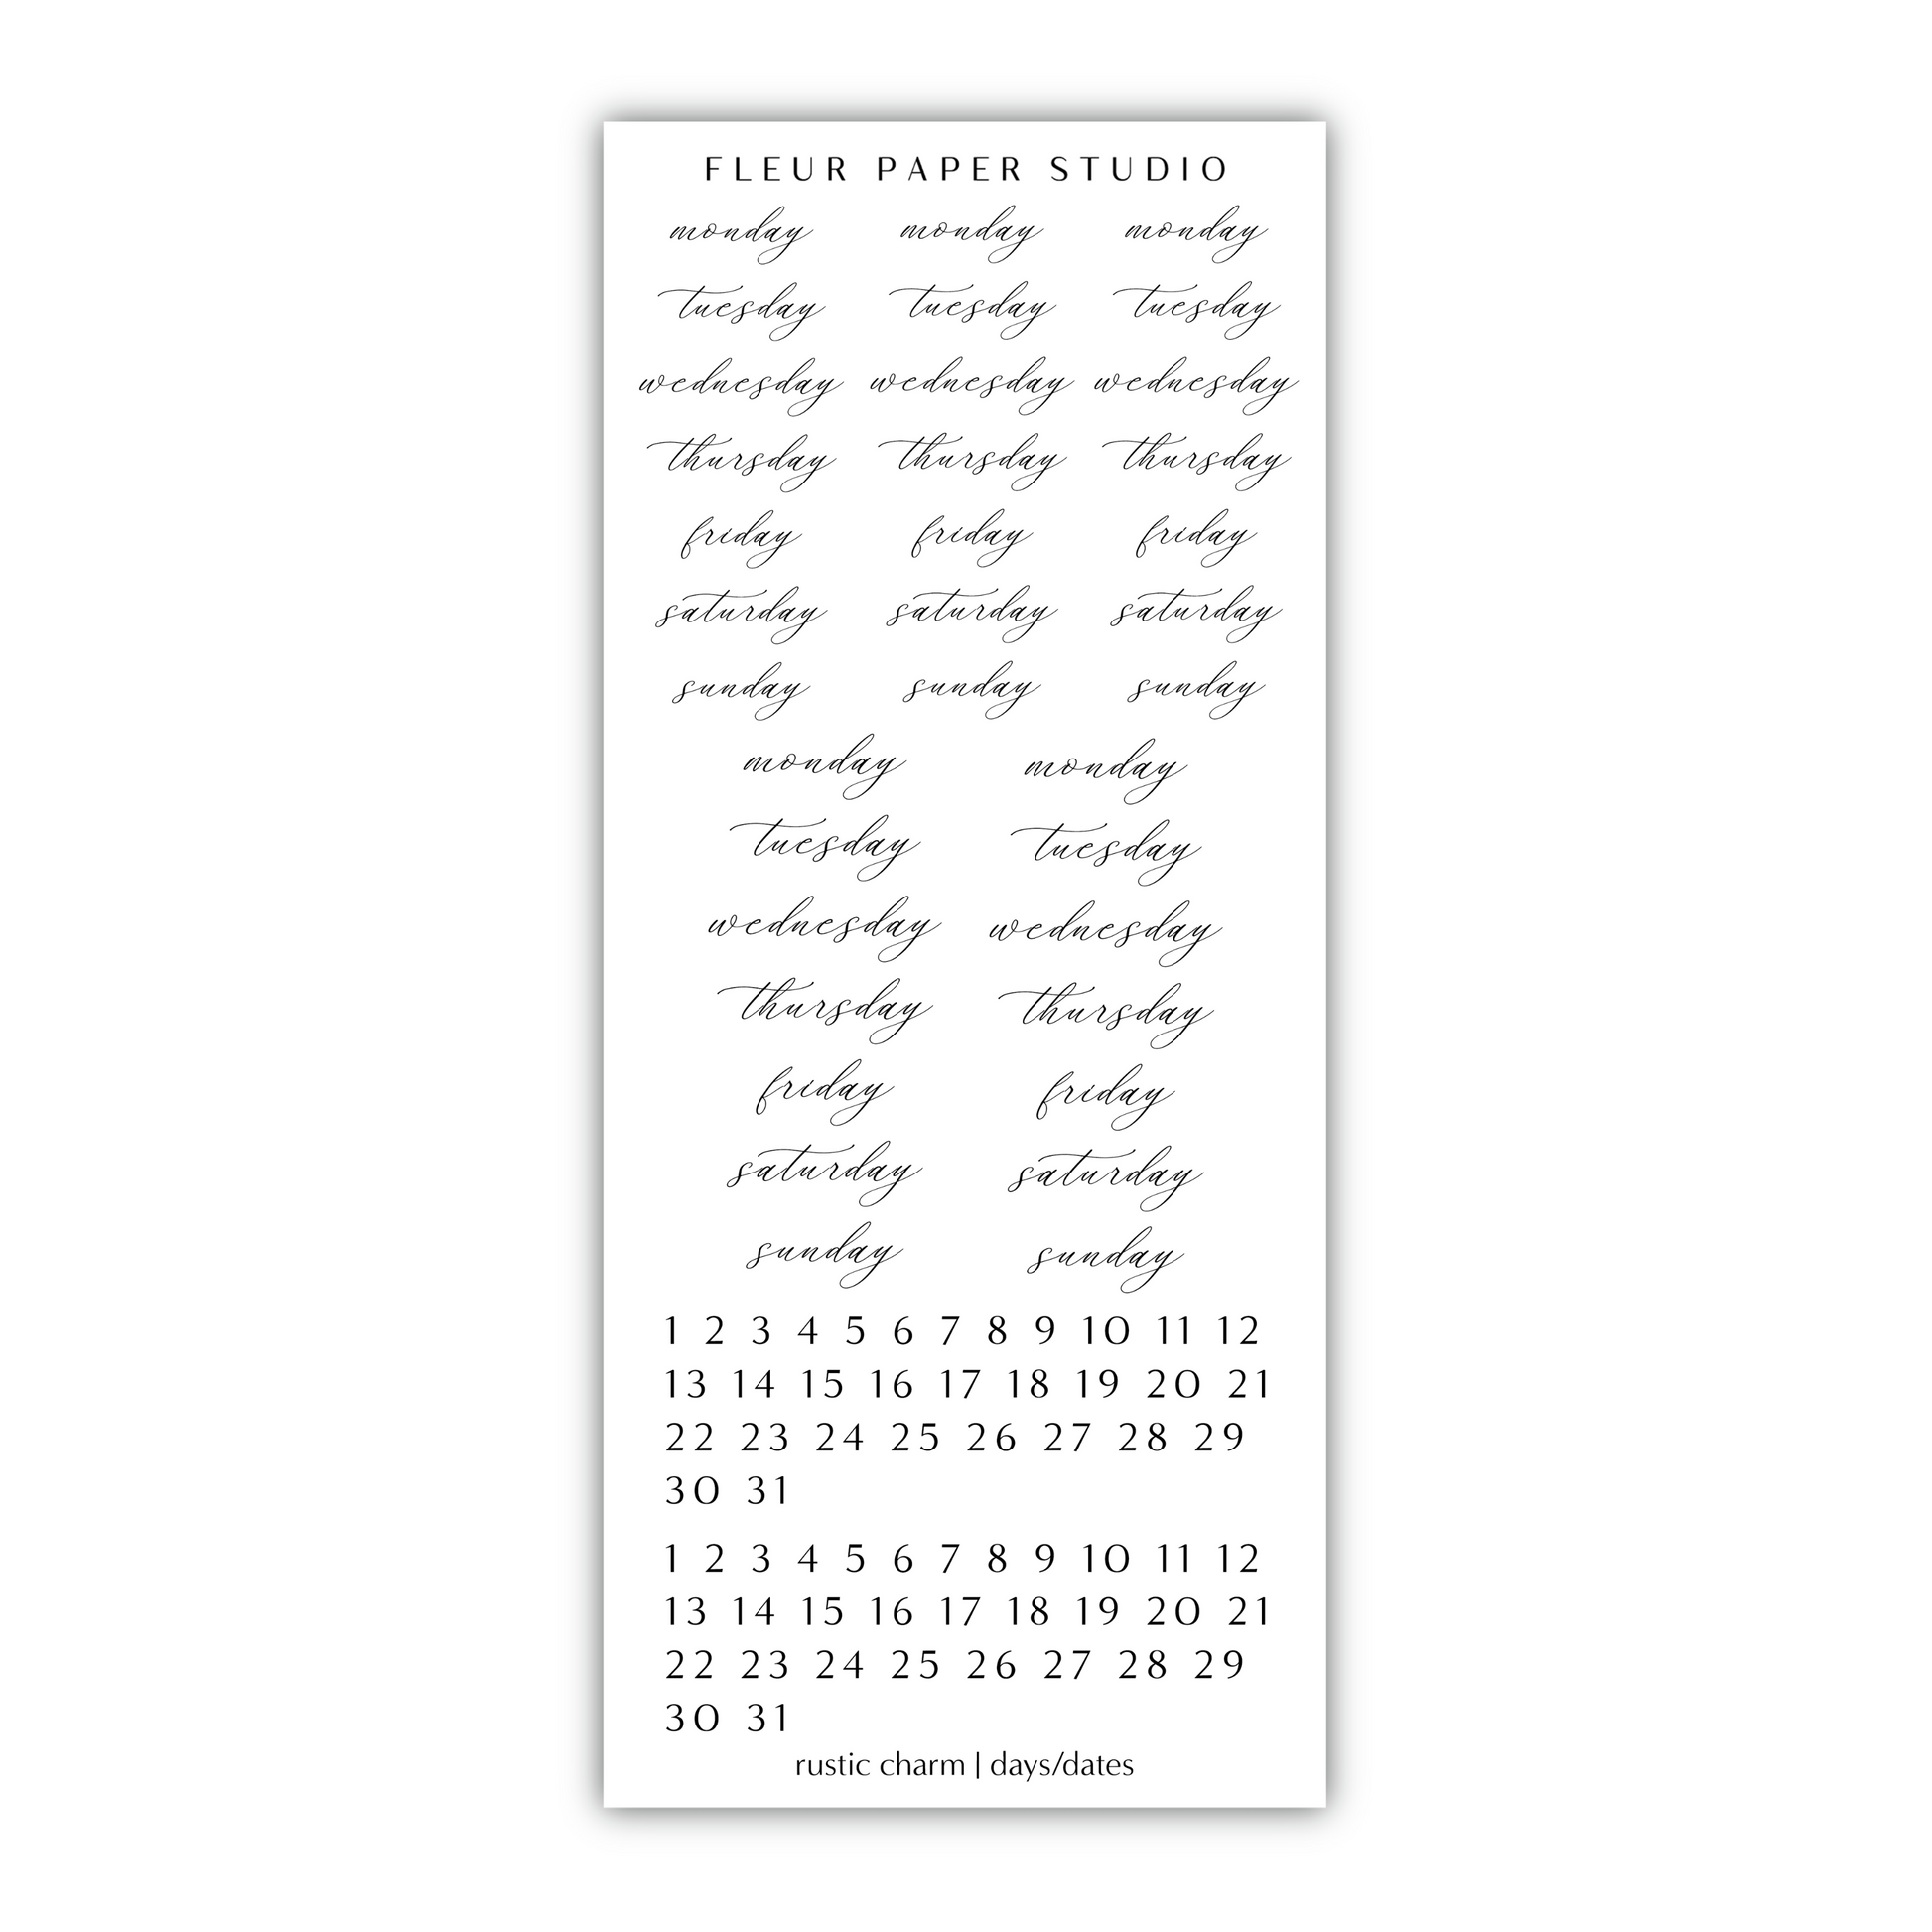 FLEUR PAPER STUDIO
monday monday monday
tuesday tuesday tuesday
wednesday wednesday wednesday
thursday thursday thursday
friday friday friday
saturday saturday saturday
sunday sunday sunday
monday monday
tuesday tuesday
wednesday wednesday
thursday thursday
friday friday
saturday saturday
sunday sunday
1 2 3 4 5 6 7 8 9 10 11 12
13 14 15 16 17 18 19 20 21
22 23 24 25 26 27 28 29
30 31
1 2 3 4 5 6 7 8 9 10 11 12
13 14 15 16 17 18 19 20 21
22 23 24 25 26 27 28 29
30 31
rustic charm | days/dates